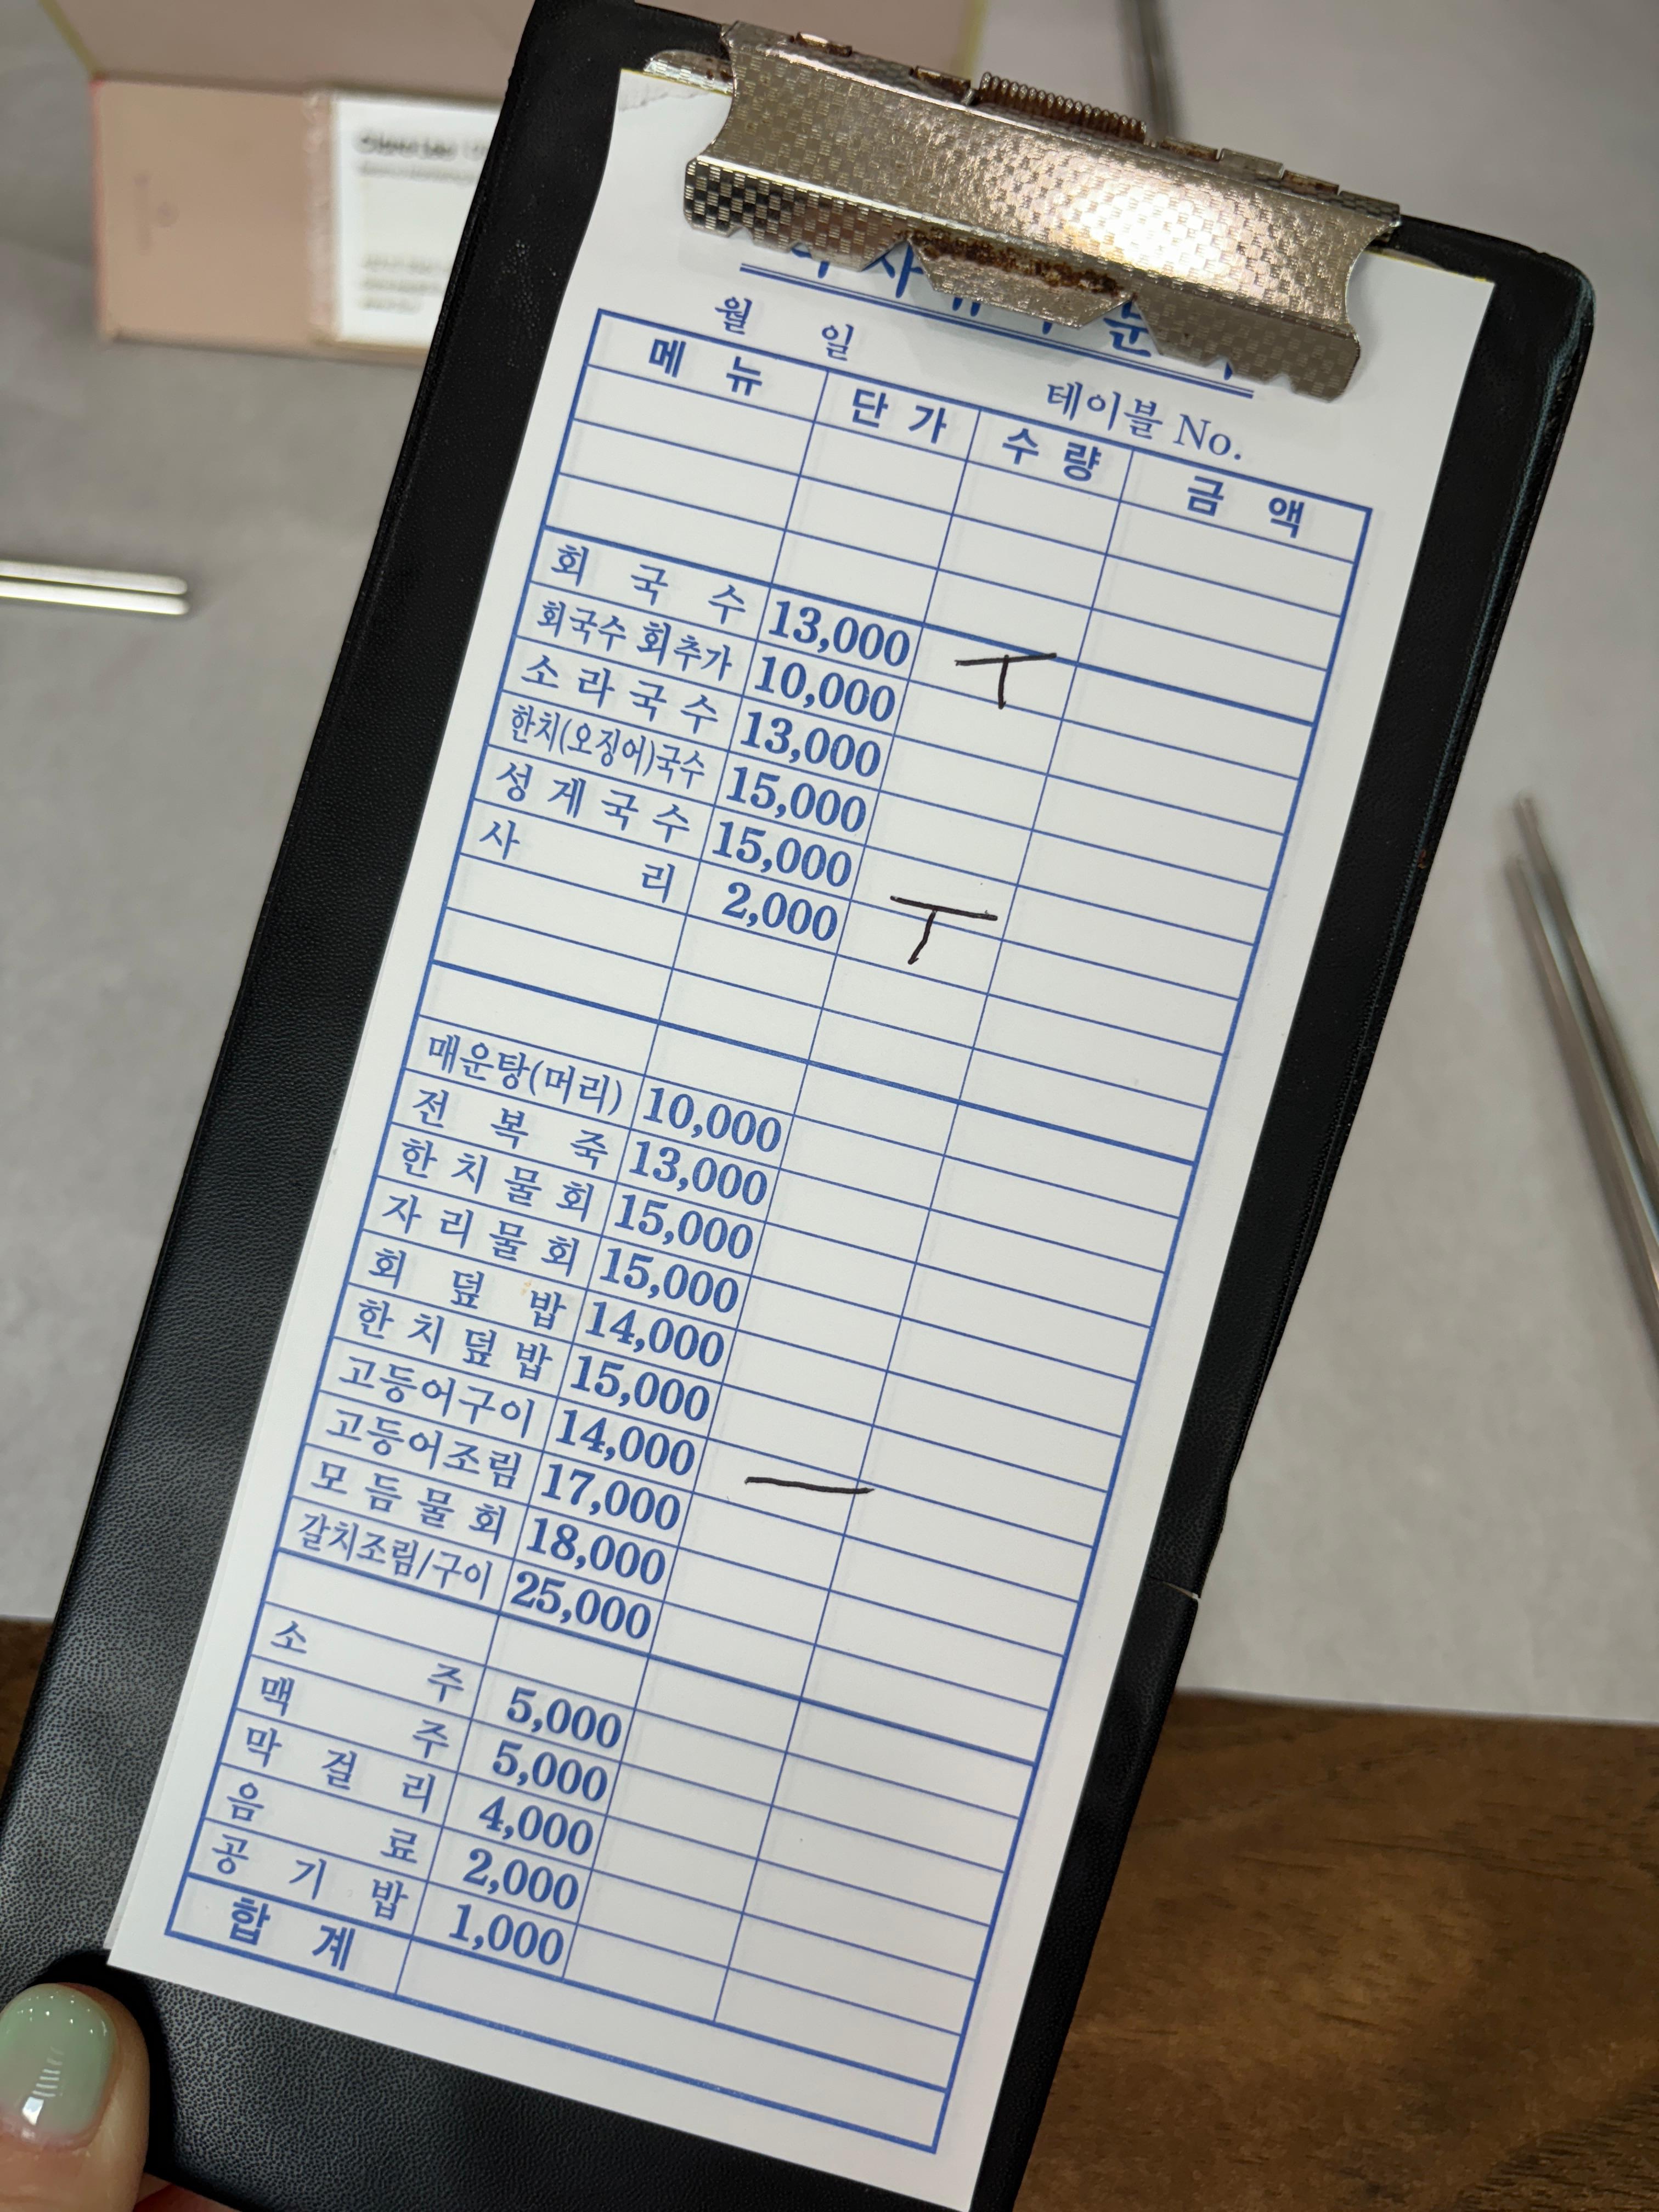 월 일
테이블 No.
메 뉴 단 가 수 량 금 액
회 국 수 13,000 T
회국수 회추가 10,000
소 라 국 수 13,000
한치(오징어)국수 15,000
성 게 국 수 15,000
사 리 2,000 T
매운탕(머리) 10,000
전 복 죽 13,000
한 치 물 회 15,000
자 리 물 회 15,000
회 덮 밥 14,000
한 치 덮 밥 15,000
고등어구이 14,000
고등어조림 17,000 一
모 듬 물 회 18,000
갈치조림/구이 25,000
소 주 5,000
맥 주 5,000
막 걸 리 4,000
음 료 2,000
공 기 밥 1,000
합 계